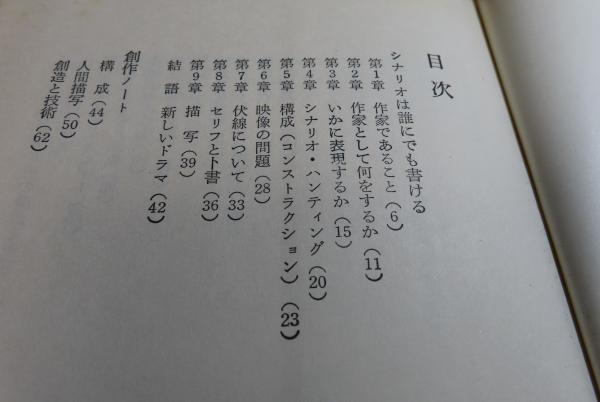 目次
シナリオは誰にでも書ける
第1章 作家であること(6)
第2章 作家として何をするか(11)
第3章 いかに表現するか(15)
第4章 シナリオ・ハンティング(20)
第5章 構成(コンストラクション)(23)
第6章 映像の問題(28)
第7章 伏線について(33)
第8章 セリフとト書(36)
第9章 描写(39)
結語 新しいドラマ(42)
創作ノート
構成(44)
人間描写(50)
創造と技術(62)